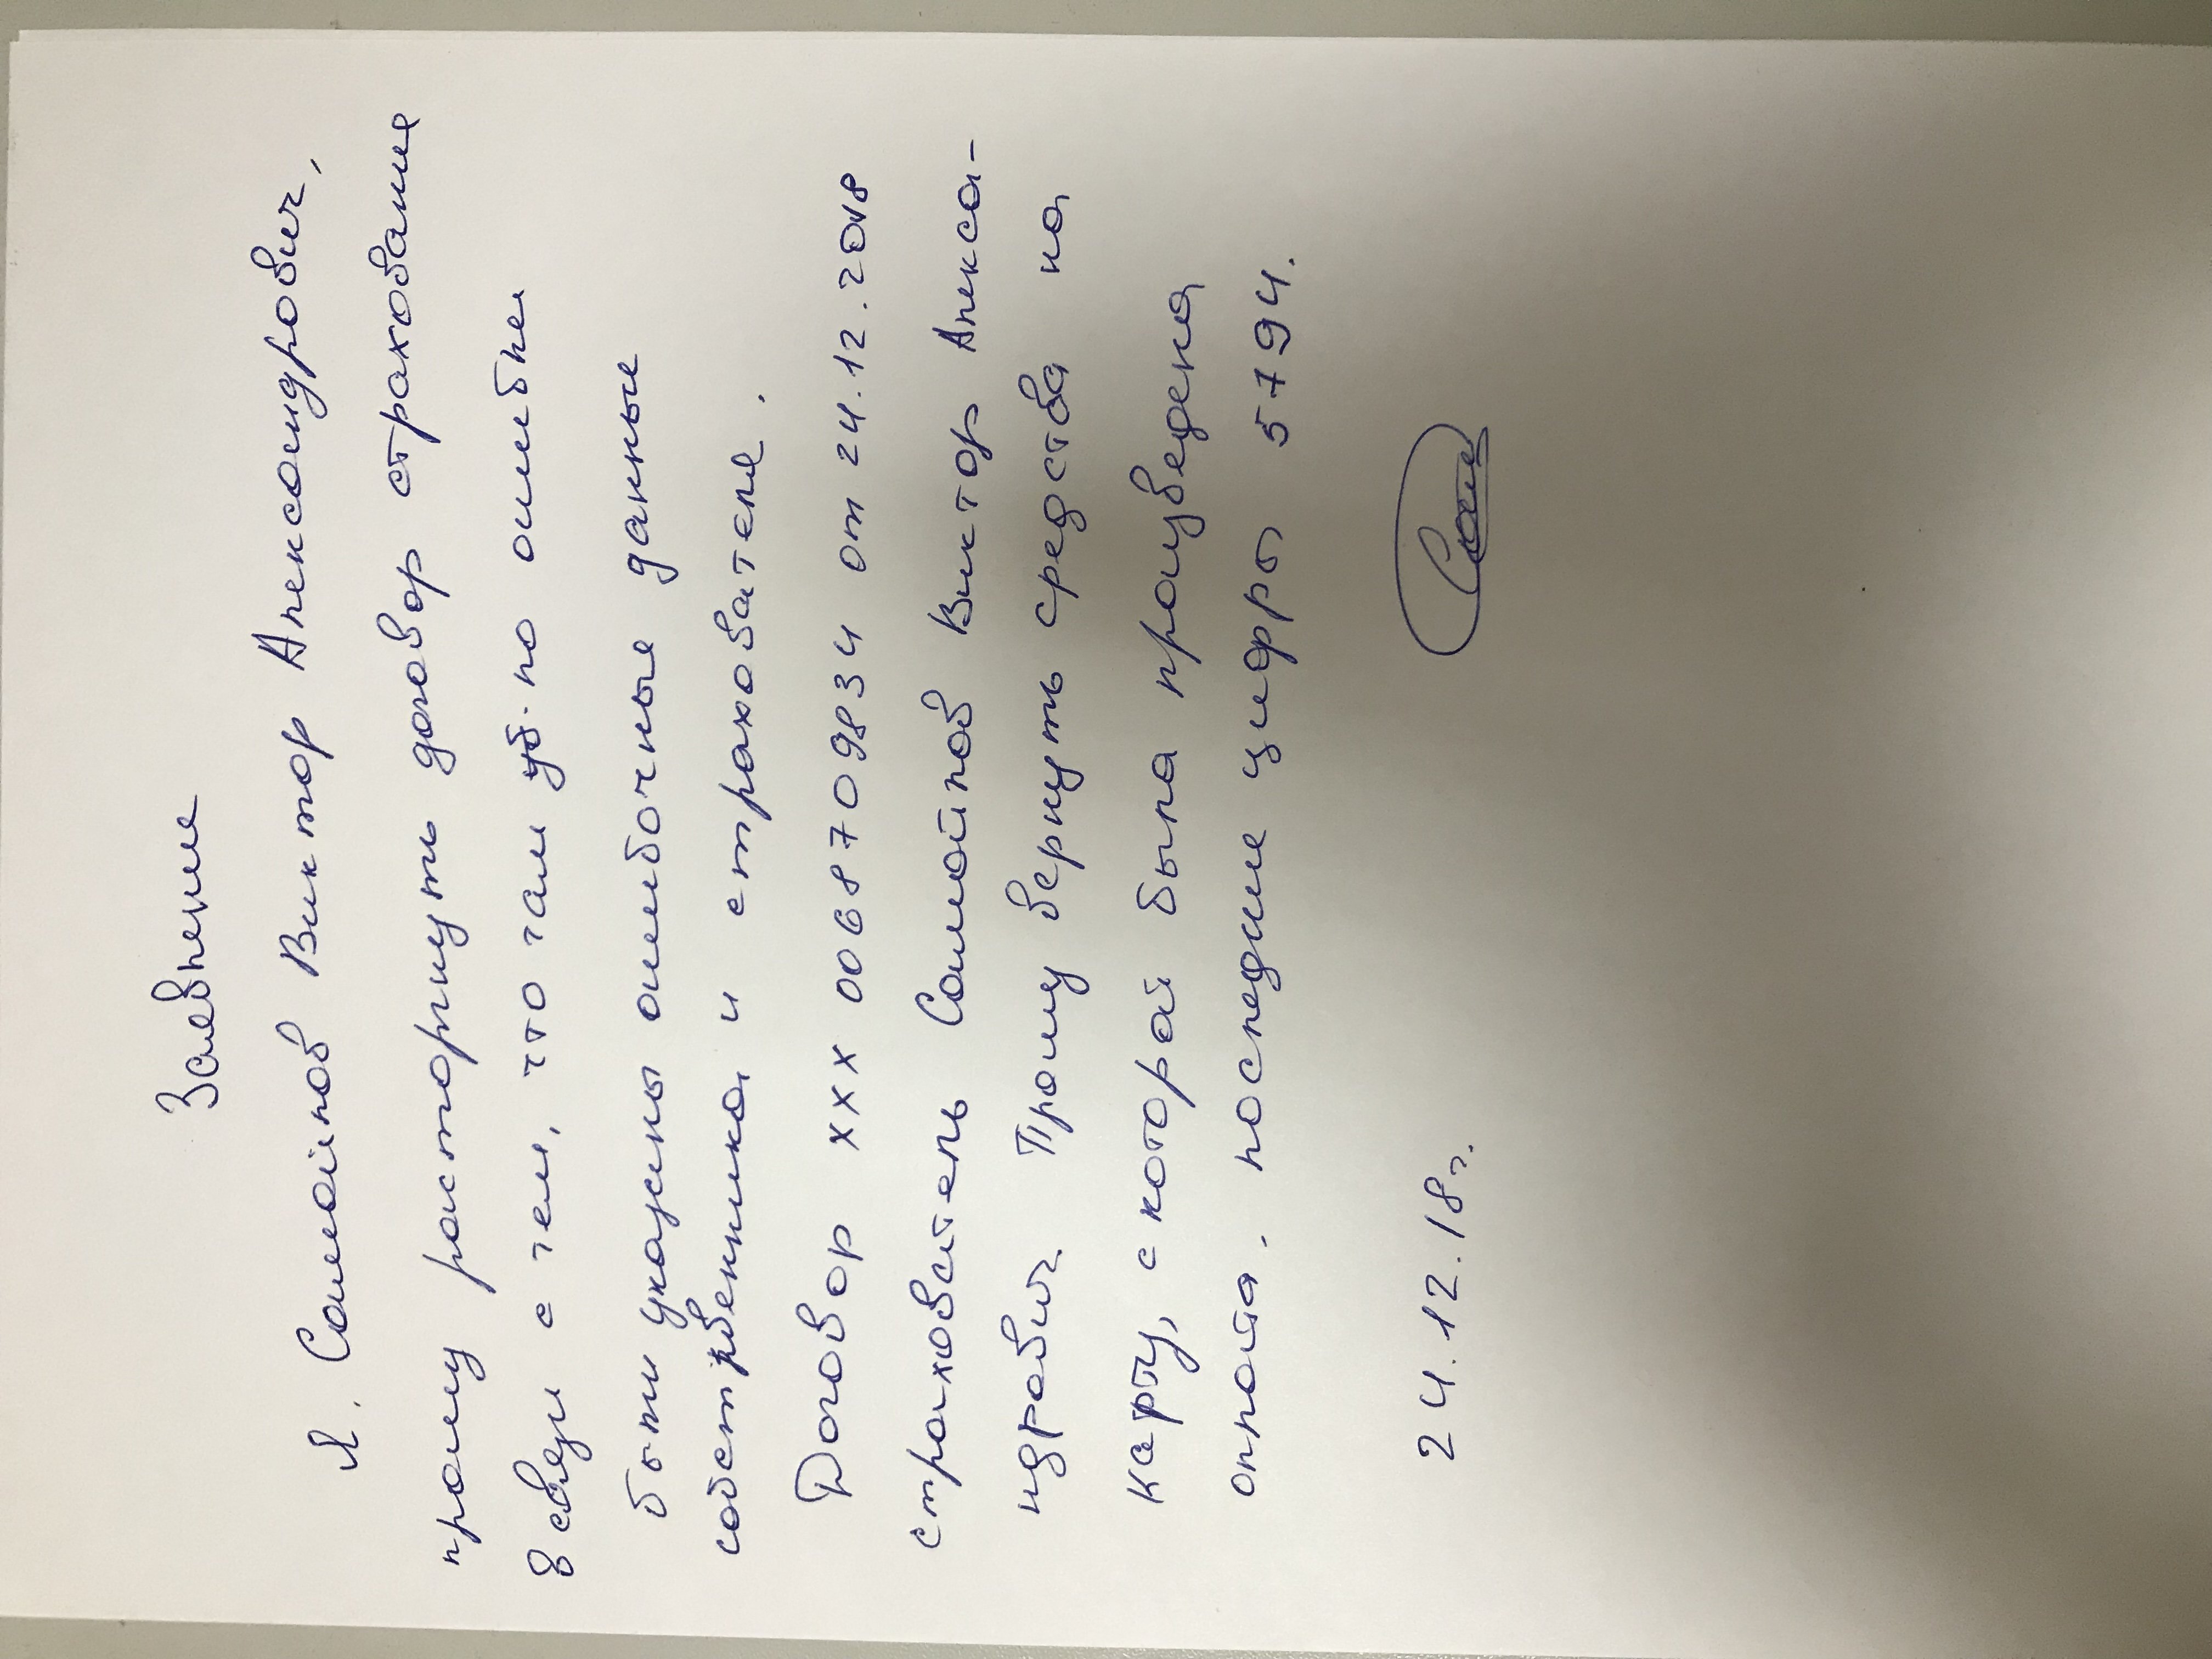 Заявление
Я, Самойлов Виктор Александрович,
прошу расторгнуть договор страхование
в связи с тем, что там по ошибке
были указаны ошибочные данные
собственника и страхователя.
Договор ххх 0068709834 от 24.12.2018
страхователь Самойлов Виктор Алекса-
ндрович Прошу вернуть средства на
карту, с которой была произведена
оплата, последние цифры 5794.
24.12.18г.